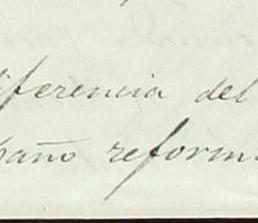 iferencia del
paño reform